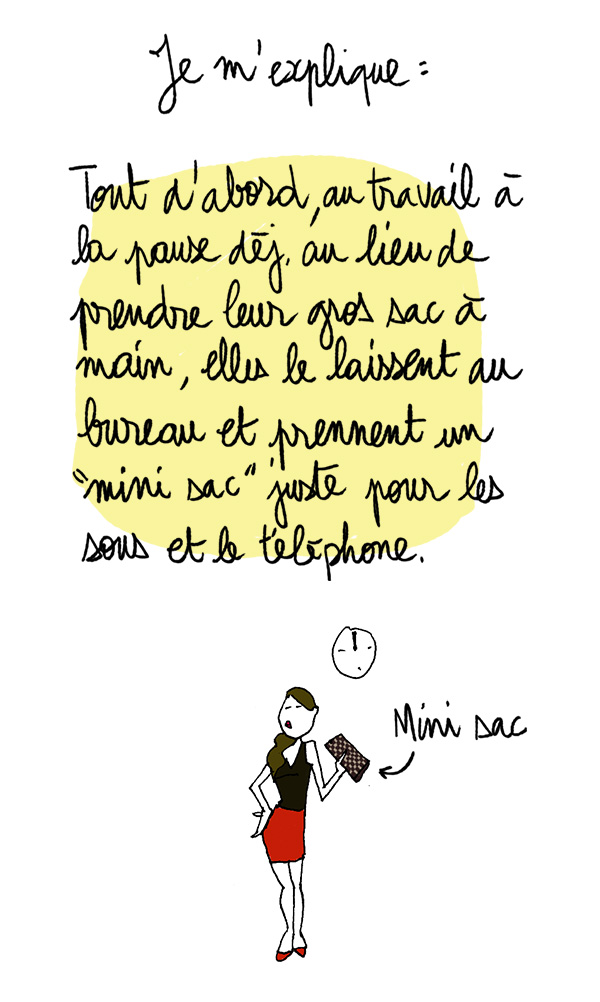 Je m'explique :
Tout d'abord, au travail à
la pause déj. au lieu de
prendre leur gros sac à
main, elles le laissent au
bureau et prennent un
"mini sac" juste pour les
sous et le téléphone.
Mini sac